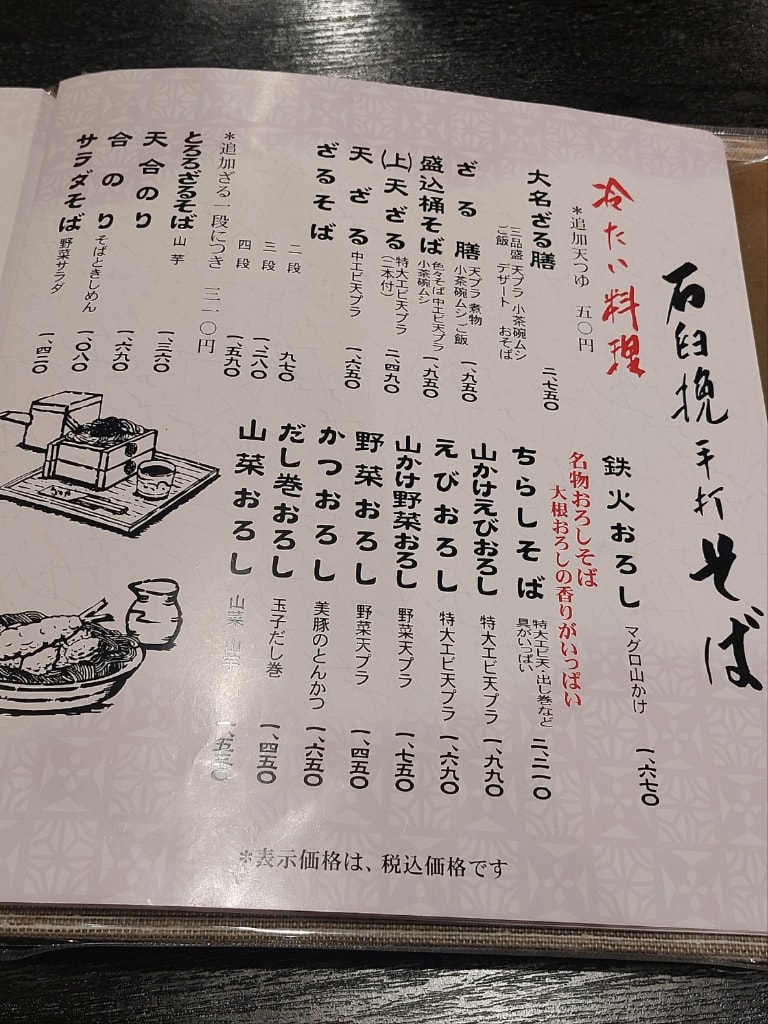 石臼挽手打そば
冷たい料理
＊追加天つゆ 五〇円
大名ざる膳 三品盛 天プラ 小茶碗ムシ
ご飯 デザート おそば 二、七五〇
ざる膳 天プラ 煮物
小茶碗ムシ ご飯 一、九五〇
盛込桶そば 色々そば 中エビ天プラ
小茶碗ムシ 一、九五〇
㈤天ざる 特大エビ天プラ
(二本付) 二、四九〇
天ざる 中エビ天プラ 一、六五〇
ざるそば
二段 九七〇
三段 一、二八〇
四段 一、五九〇
＊追加ざる一段につき 三一〇円
とろろざるそば 山芋 一、三六〇
天合のり 一、六九〇
合のり そばときしめん 一、〇八〇
サラダそば 野菜サラダ 一、四二〇
鉄火おろし マグロ山かけ 一、六七〇
名物おろしそば
大根おろしの香りがいっぱい
ちらしそば 特大エビ天・出し巻など
具がいっぱい 二、二一〇
山かけえびおろし 特大エビ天プラ 一、九九〇
えびおろし 特大エビ天プラ 一、六九〇
山かけ野菜おろし 野菜天プラ 一、七五〇
野菜おろし 野菜天プラ 一、四五〇
かつおろし 美豚のとんかつ 一、六五〇
だし巻おろし 玉子だし巻 一、四五〇
山菜おろし 山菜 山芋 一、五三〇
＊表示価格は、税込価格です